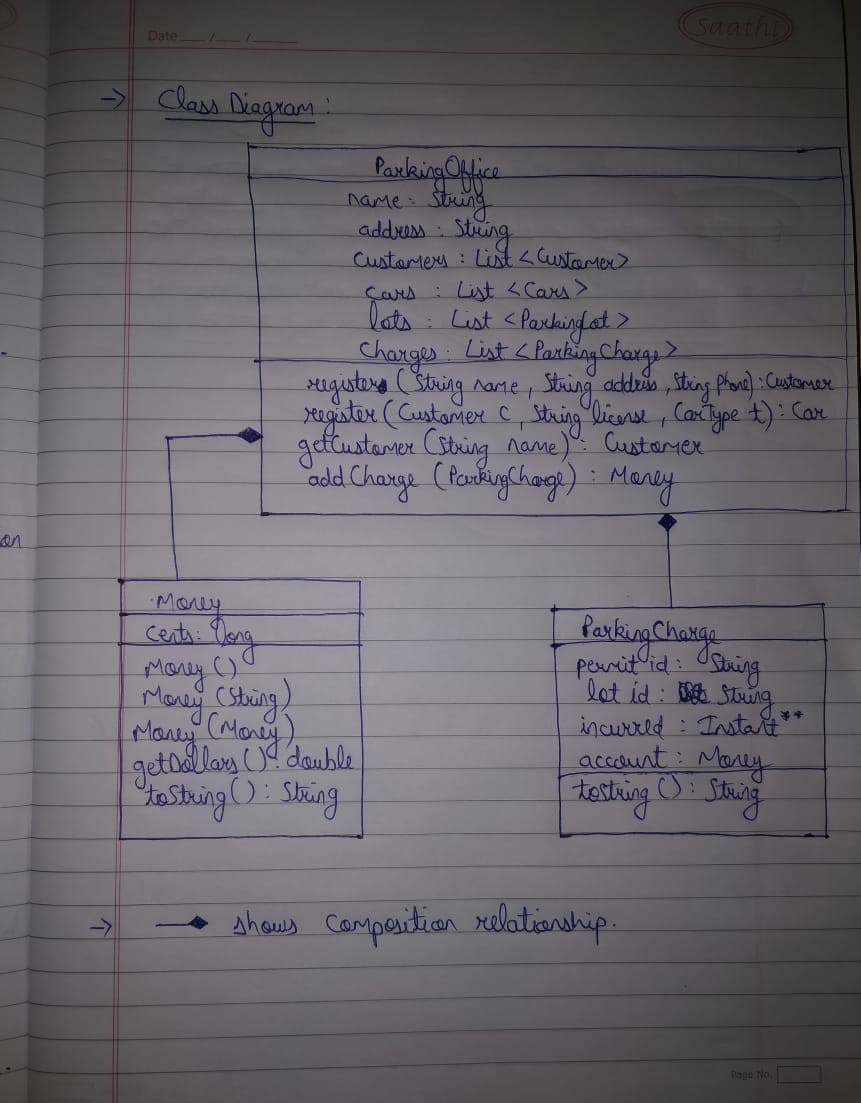 Date __/__/____
Saathi
→ Class Diagram :
ParkingOffice
name : String
address : String
Customers : List <Customer>
cars : List <Cars>
lots : List <ParkingLot>
Charges : List <ParkingCharge>
register (String name, String address, String phone) : Customer
register (Customer c, String license, CarType t) : Car
getCustomer (String name) : Customer
addCharge (ParkingCharge) : Money
Money
Cents : long
Money ()
Money (String)
Money (Money)
getDollars () : double
toString () : String
ParkingCharge
permit id : String
lot id : String
incurred : Instant**
account : Money
tostring () : String
→ shows Composition relationship.
Page No.